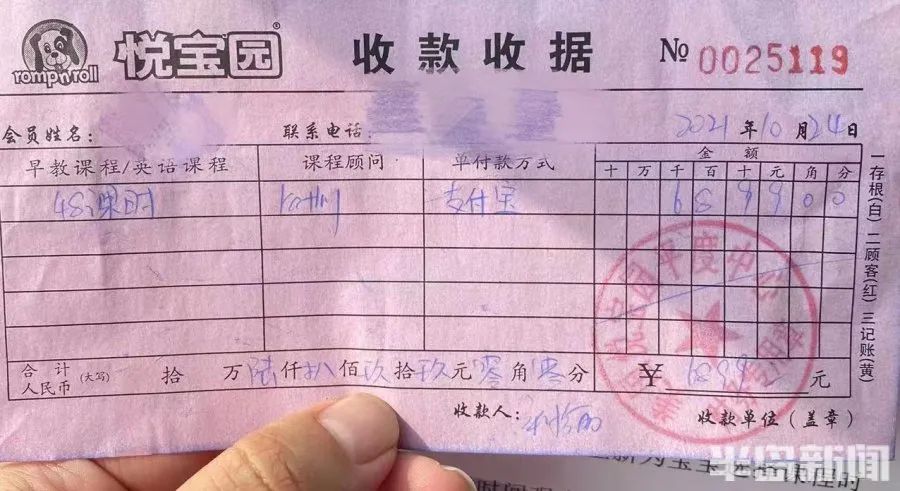 romp n' roll 悦宝园® 收款收据 № 0025119
会员姓名: 联系电话: 2021年10月24日
早教课程/英语课程 课程顾问 单付款方式 金额
十 万 千 百 十 元 角 分
48课时 Kathy 支付宝 6 8 9 9 0 0
合计人民币(大写) 拾 万 陆仟捌佰玖拾玖元零角零分 ¥ 6899 元
收款人: 收款单位(盖章)
一存根(白) 二顾客(红) 三记账(黄)
半岛新闻